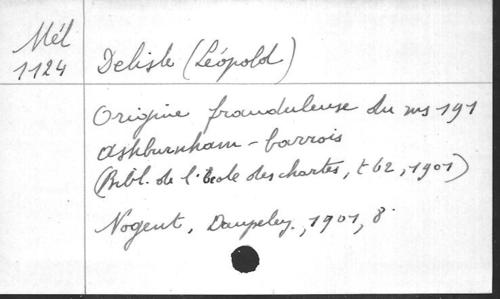 Mél
1124
Delisle (Léopold)
Origine frauduleuse du ms 191
Ashburnham-barrois
(Bibl. de l'École des chartes, t 62, 1901)
Nogent, Daupeley, 1901, 8°